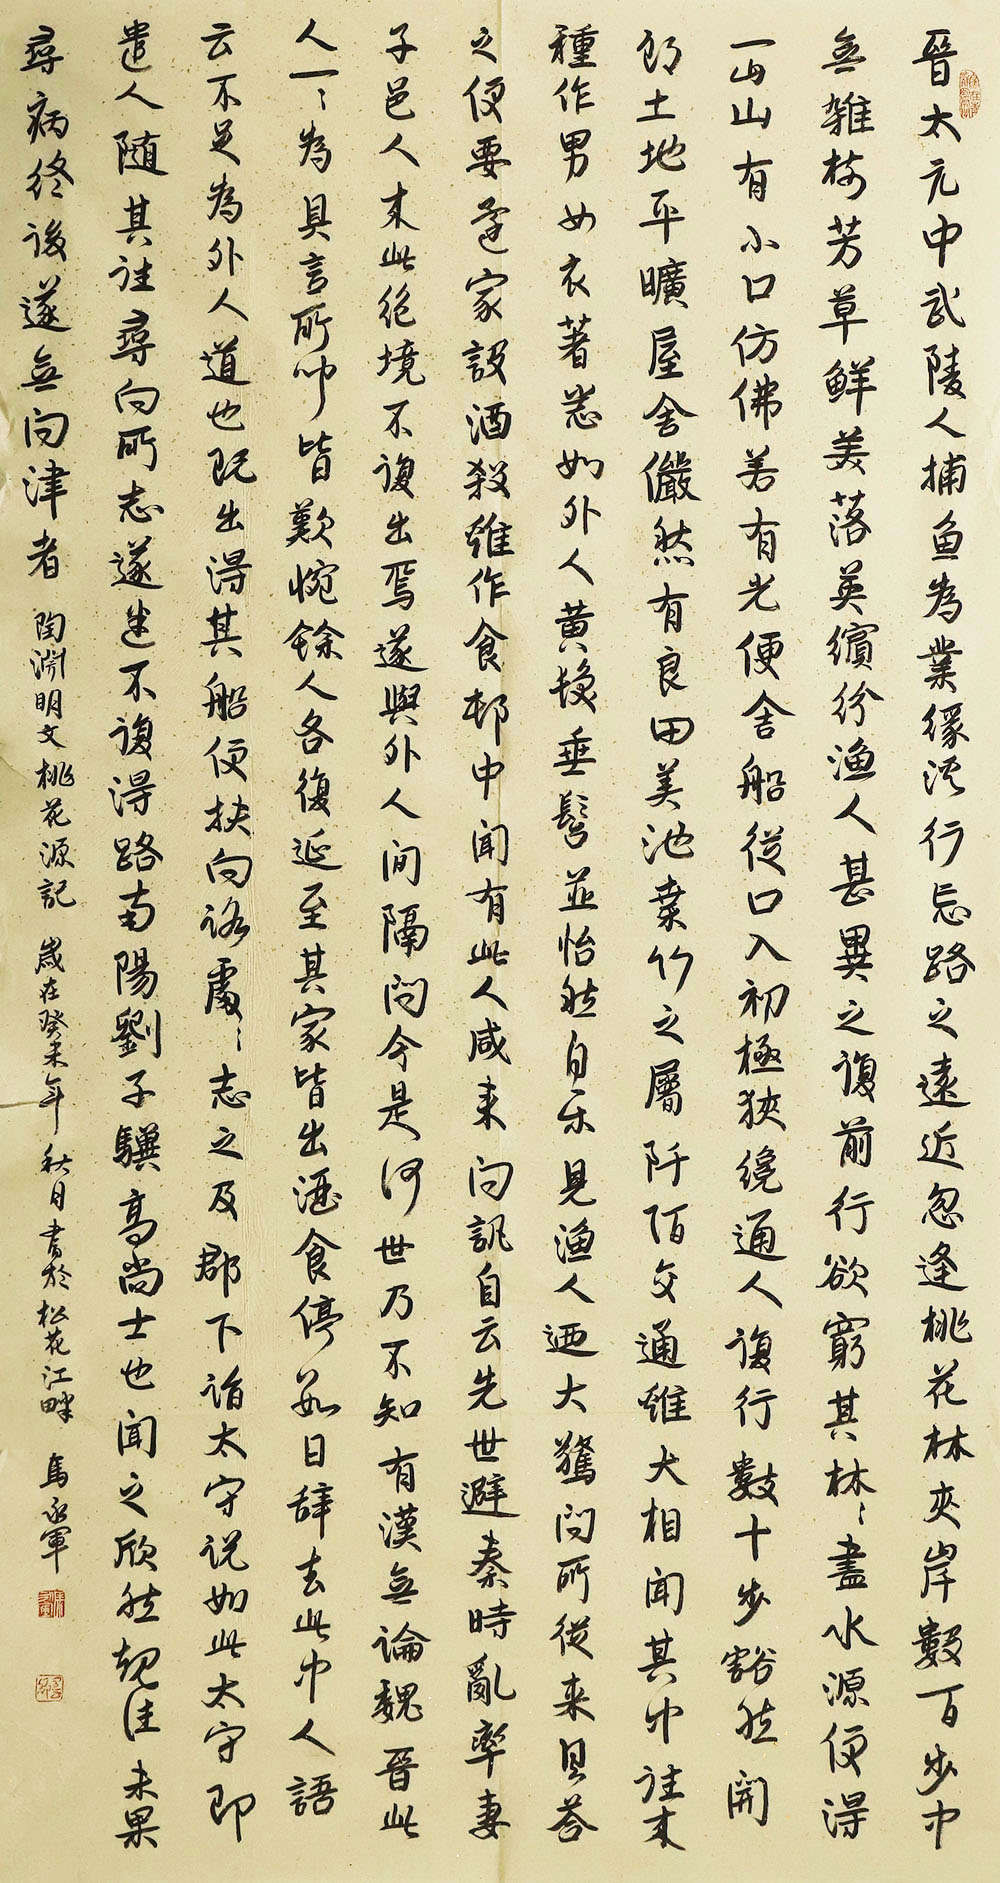 晉太元中武陵人捕魚為業緣溪行忘路之遠近忽逢桃花林夾岸數百步中
無雜樹芳草鮮美落英繽紛漁人甚異之復前行欲窮其林〻盡水源便得
一山山有小口仿佛若有光便舍船從口入初極狹纔通人復行數十步豁然開
朗土地平曠屋舍儼然有良田美池桑竹之屬阡陌交通雞犬相聞其中往來
種作男女衣著悉如外人黃髮垂髫並怡然自樂見漁人迺大驚問所從來具答
之便要還家設酒殺雞作食邨中聞有此人咸來問訊自云先世避秦時亂率妻
子邑人來此絕境不復出焉遂與外人間隔問今是何世乃不知有漢無論魏晉此
人一〻為具言所聞皆歎惋餘人各復延至其家皆出酒食停數日辭去此中人語
云不足為外人道也既出得其船便扶向路處〻志之及郡下詣太守說如此太守即
遣人隨其往尋向所志遂迷不復得路南陽劉子驥高尚士也聞之欣然規往未果
尋病終後遂無問津者 陶淵明文桃花源記 歲在癸未年秋月書於松花江畔 馬永軍